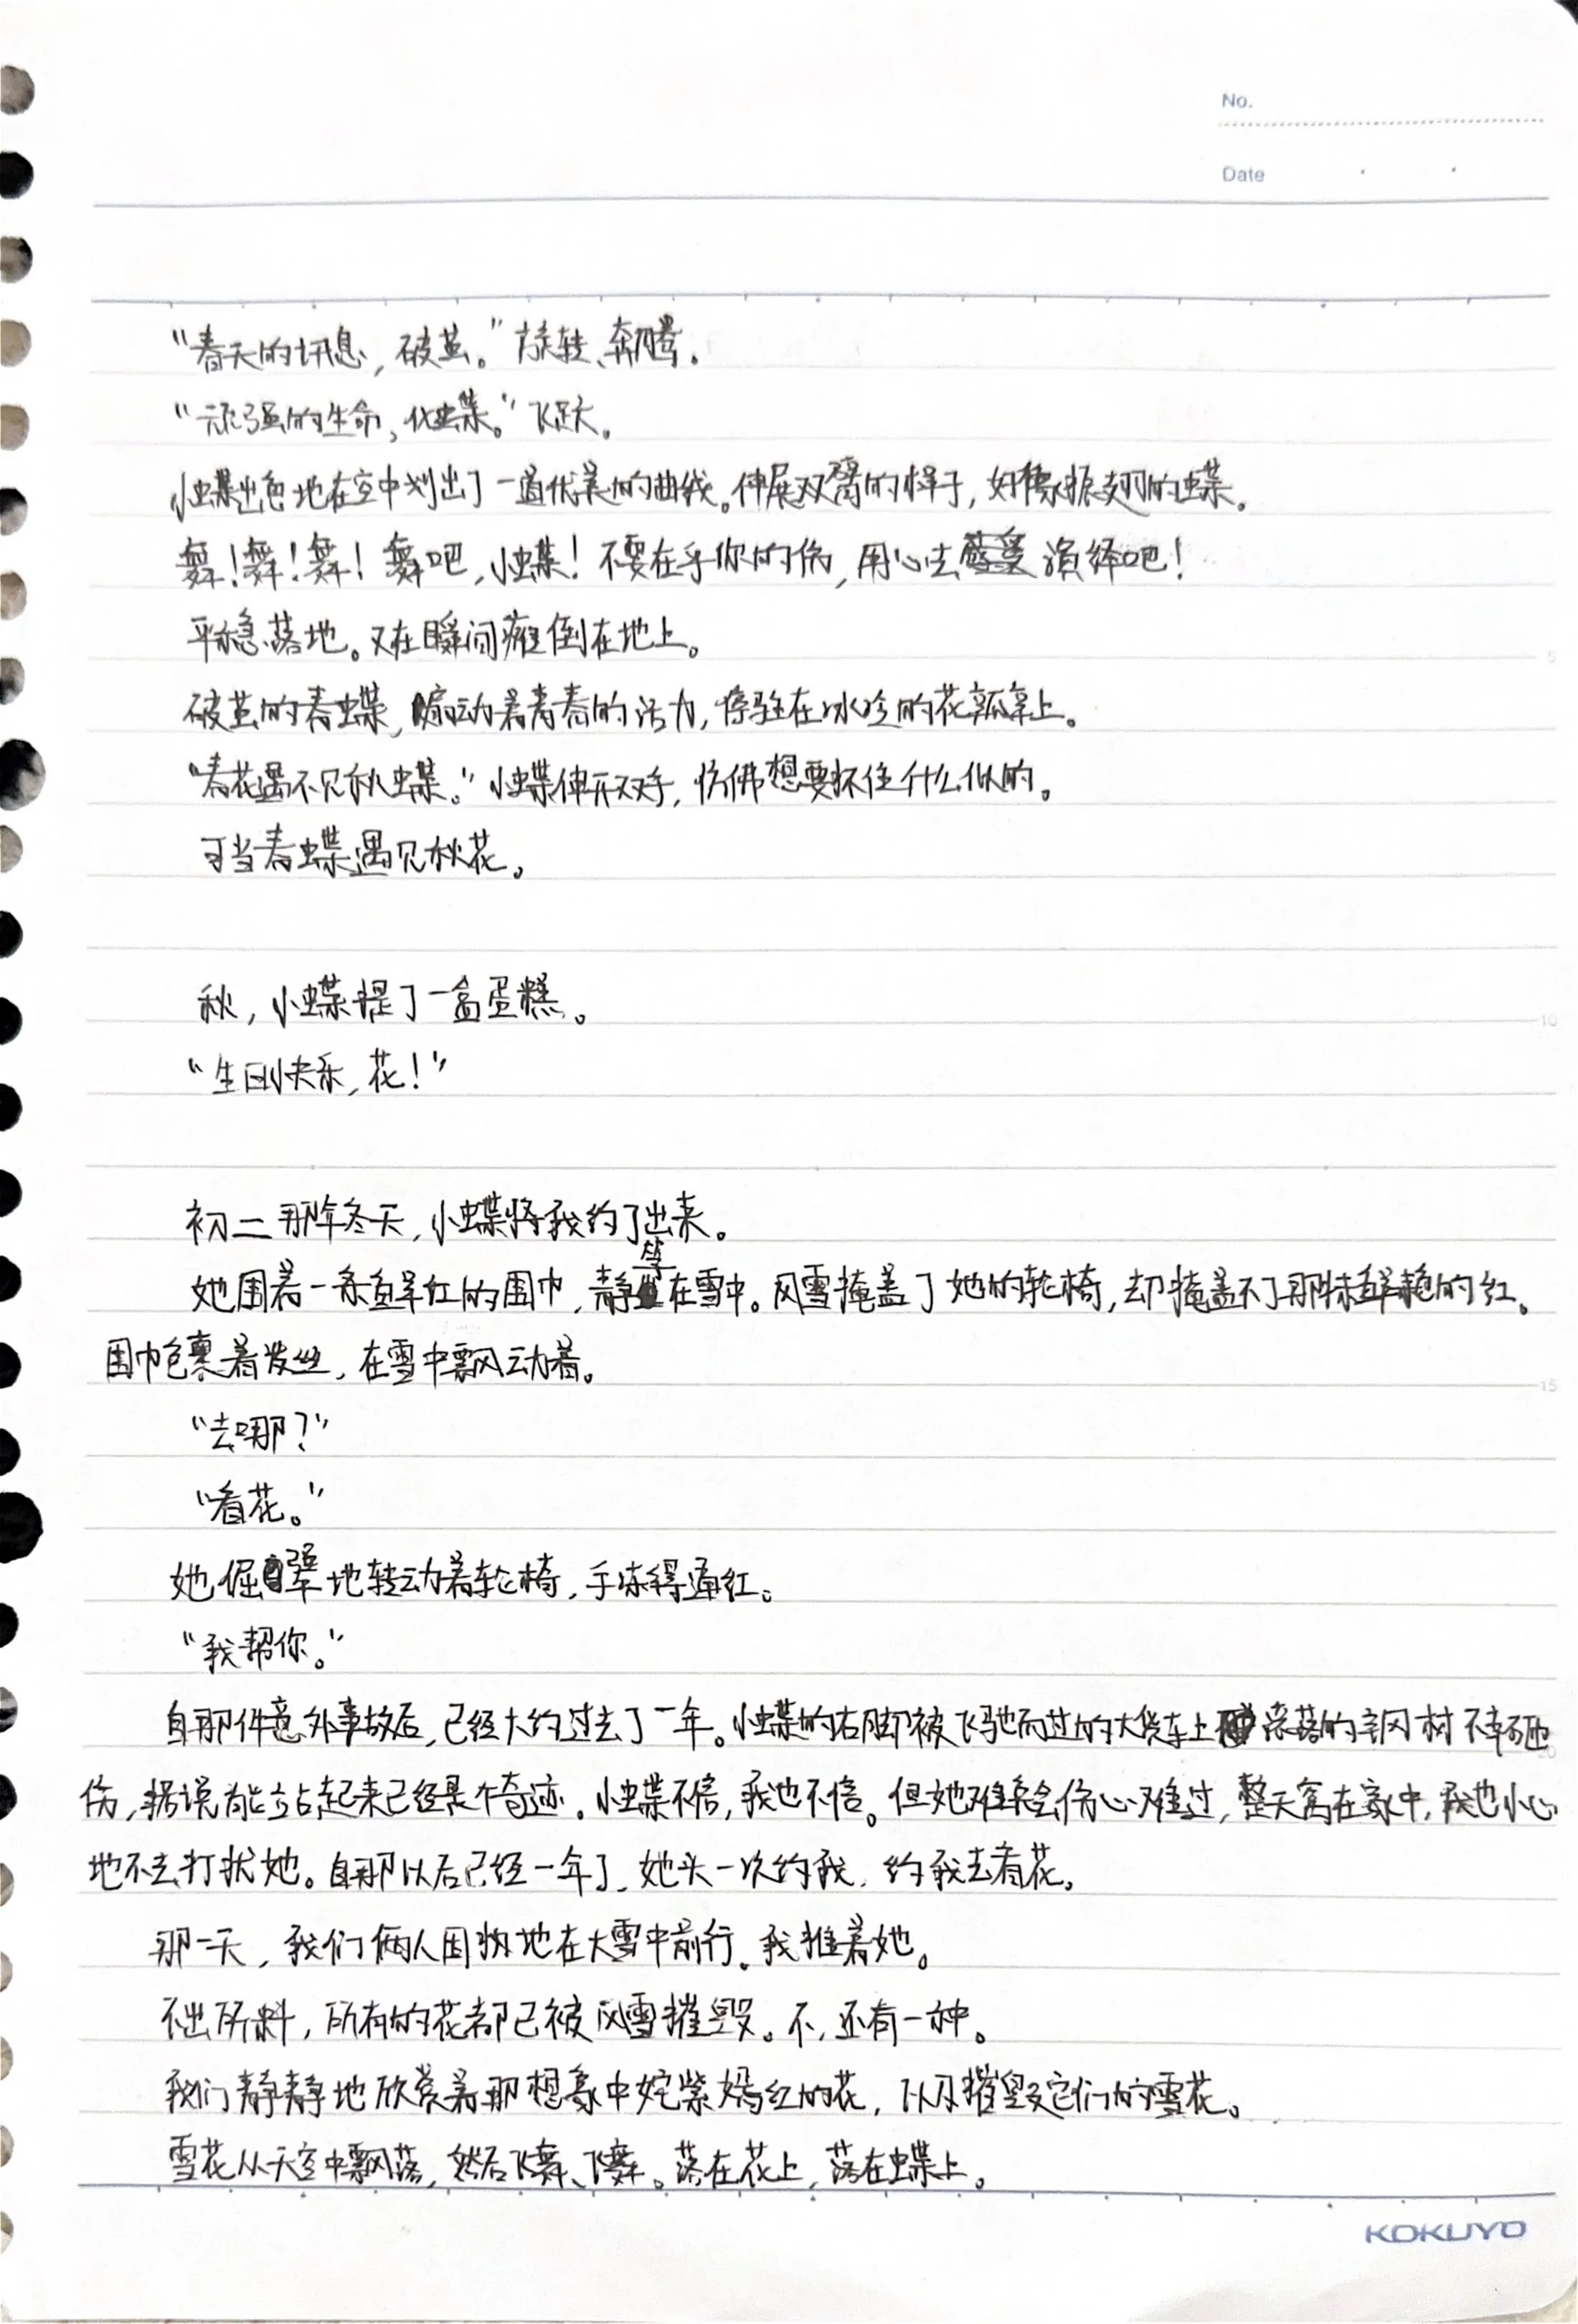 No.
Date
“春天的讯息,破茧。”旋转、奔腾。
“顽强的生命,化蝶。”飞跃。
小蝶出色地在空中划出了一道优美的曲线。伸展双臂的样子,好像振翅的蝶。
舞!舞!舞!舞吧,小蝶!不要在乎你的伤,用心去演绎吧!
平稳落地。又在瞬间瘫倒在地上。
破茧的春蝶,煽动着青春的活力,停驻在冰冷的花瓣上。
“春花遇不见秋蝶。”小蝶伸开双手,仿佛想要抓住什么似的。
可当春蝶遇见秋花。
秋,小蝶提了一盒蛋糕。
“生日快乐,花!”
初二那年冬天,小蝶将我约了出来。
她围着一条鲜红的围巾,静等在雪中。风雪掩盖了她的轮椅,却掩盖不了那抹鲜艳的红。
围巾包裹着发丝,在雪中飘动着。
“去哪?”
“看花。”
她倔强地转动着轮椅,手冻得通红。
“我帮你。”
自那件意外事故后,已经大约过去了一年。小蝶的右脚被飞驰而过的大货车上滚落的钢材不幸砸
伤,据说能站起来已经是个奇迹。小蝶不信,我也不信。但她难免会伤心难过,整天窝在家中,我也小心
地不去打扰她。自那以后已经一年了,她头一次约我,约我去看花。
那一天,我们俩人困难地在大雪中前行。我推着她。
不出所料,所有的花都已被风雪摧毁。不,还有一种。
我们静静地欣赏着那想象中姹紫嫣红的花,以及摧毁它们的雪花。
雪花从天空中飘落,然后飞舞、飞舞。落在花上,落在蝶上。
KOKUYO